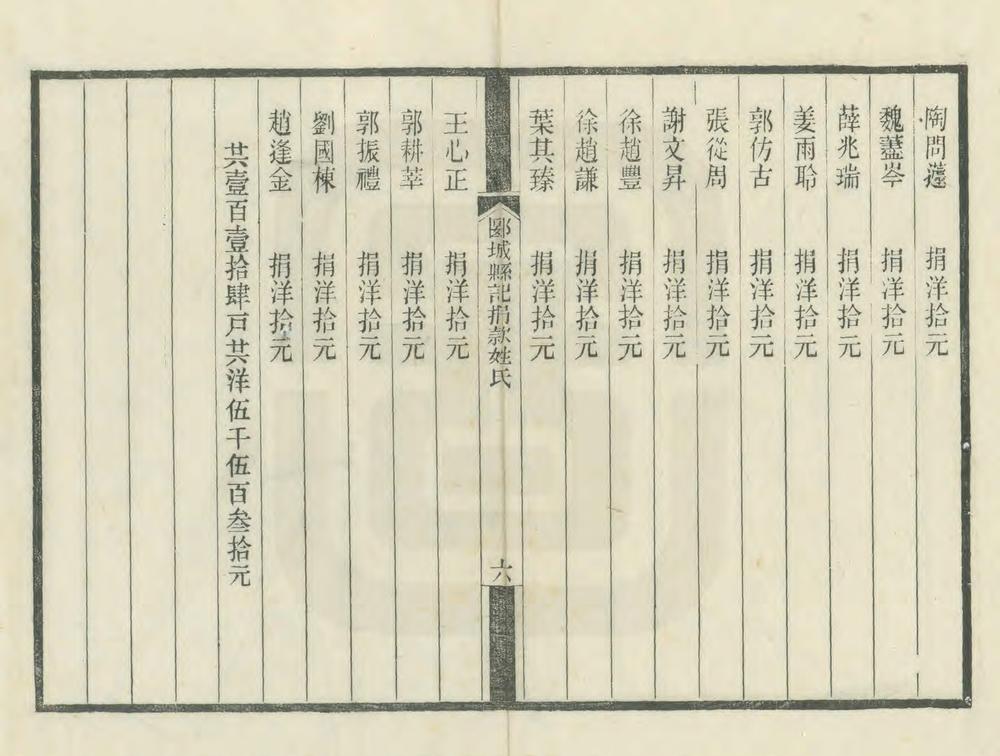 陶問薳 捐洋拾元
魏藎岑 捐洋拾元
薛兆瑞 捐洋拾元
姜雨聆 捐洋拾元
郭仿古 捐洋拾元
張從周 捐洋拾元
謝文昇 捐洋拾元
徐趙豐 捐洋拾元
徐趙謙 捐洋拾元
葉其臻 捐洋拾元
郾城縣記捐款姓氏 六
王心正 捐洋拾元
郭耕莘 捐洋拾元
郭振禮 捐洋拾元
劉國棟 捐洋拾元
趙逢金 捐洋拾元
共壹百壹拾肆戸共洋伍千伍百叁拾元